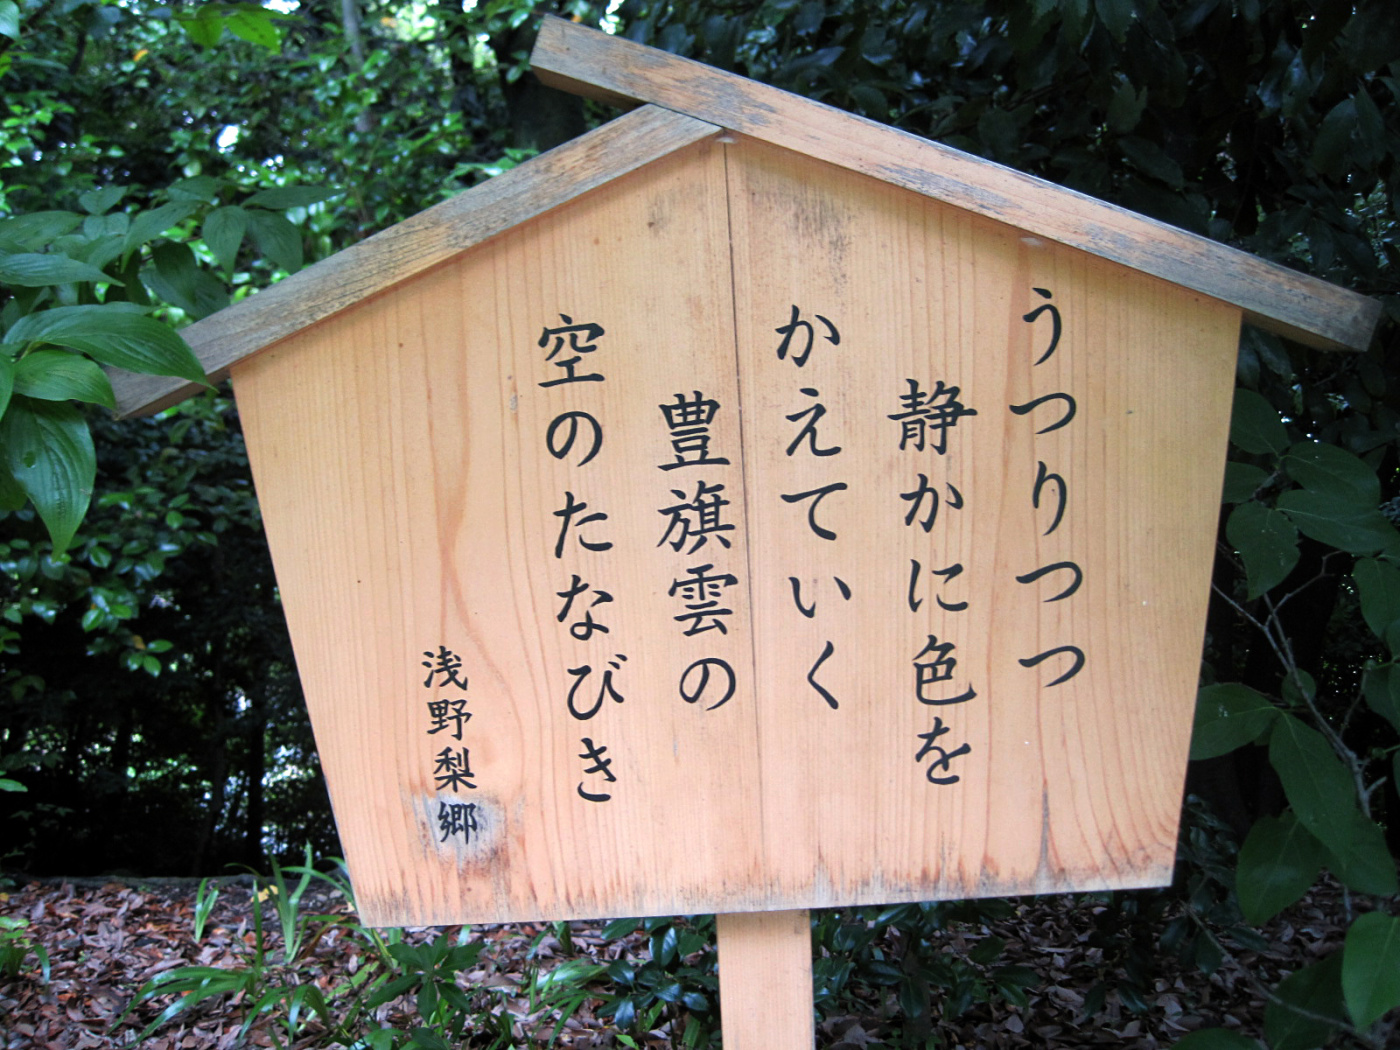 うつりつつ
静かに色を
かえていく
豊旗雲の
空のたなびき
浅野梨郷